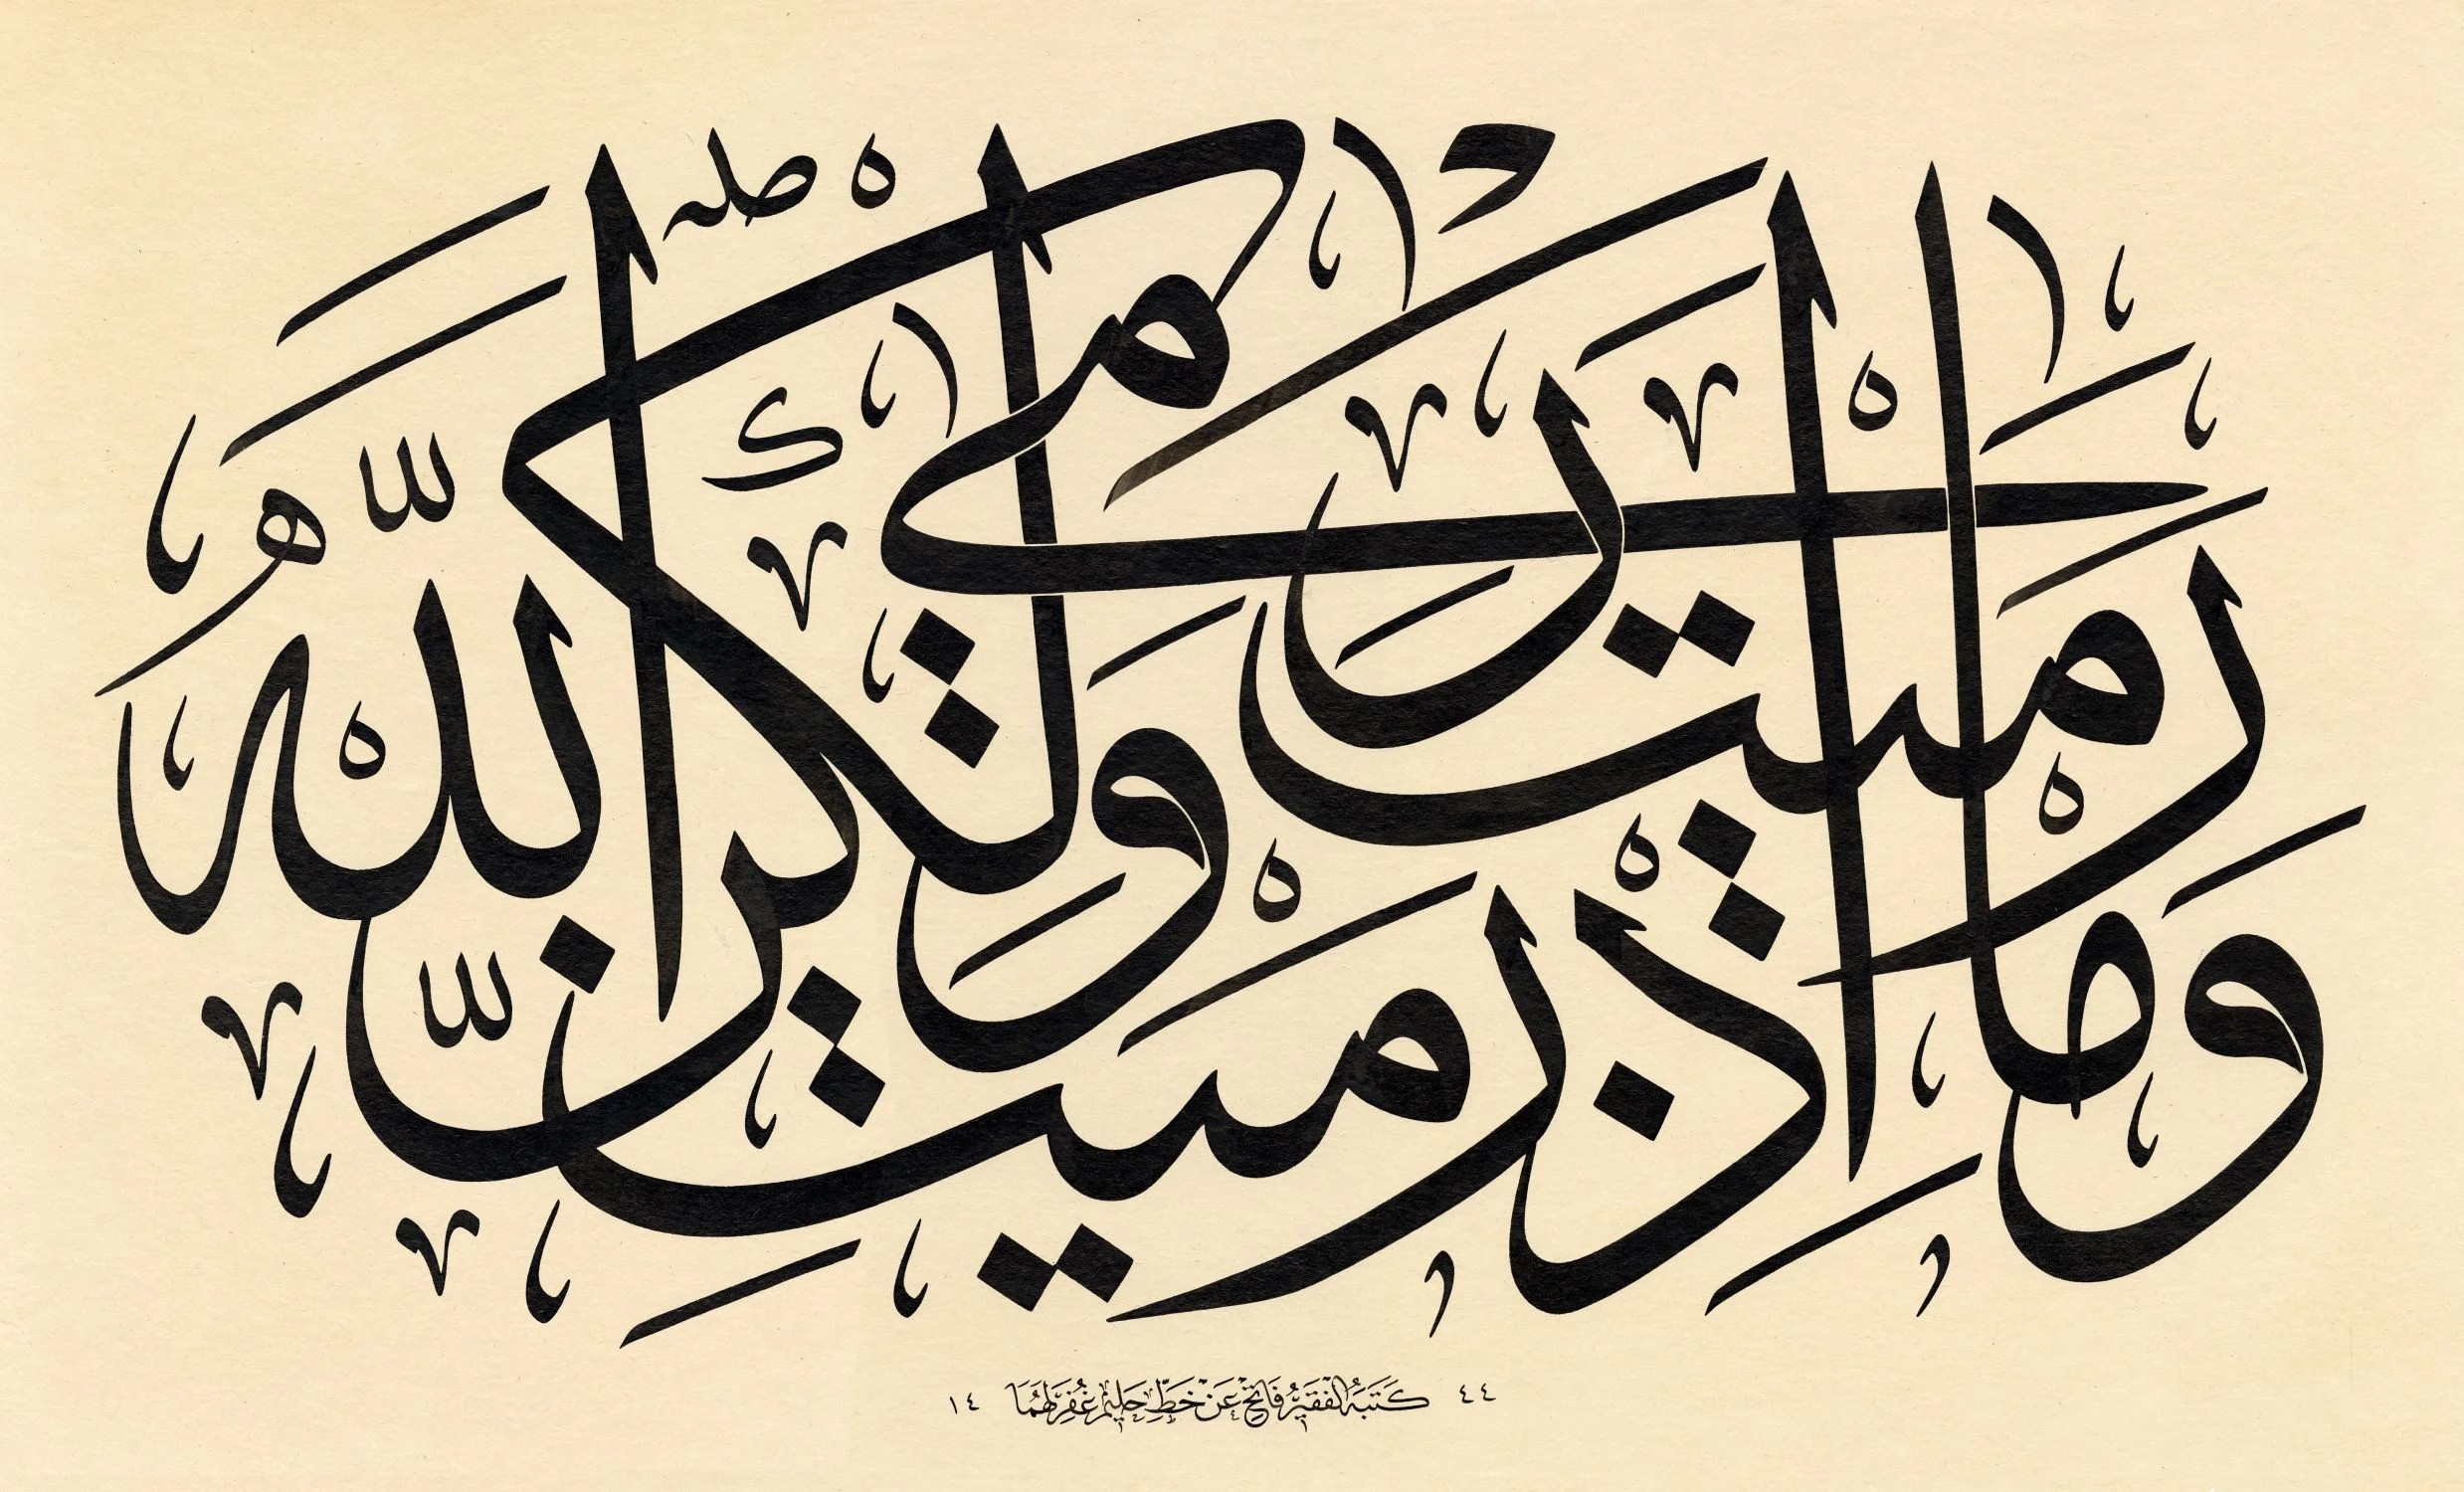 وَمَا رَمَيْتَ اِذْ رَمَيْتَ وَلٰكِنَّ اللّٰهَ رَمٰى
٤٤ كَتَبَهُ الْفَقِيرُ فَاتِحٌ عَنْ خَطِّ حَلِيمْ غُفِرَ لَهُمَا ١٤